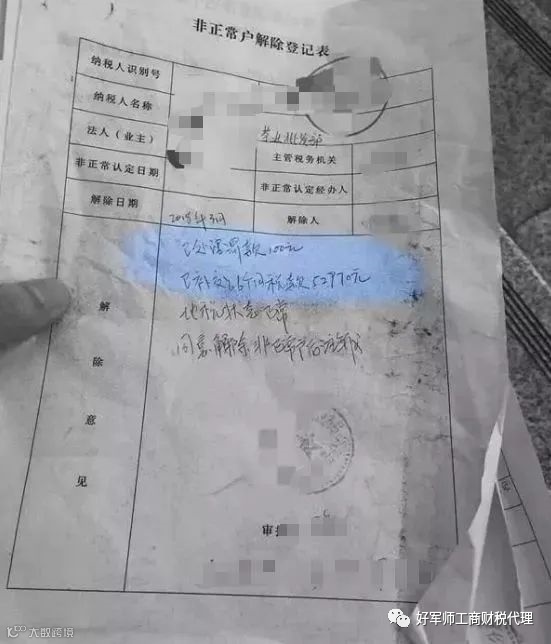 非正常户解除登记表
纳税人识别号
纳税人名称
法人（业主） 茶业批发部 主管税务机关
非正常认定日期 非正常认定经办人
解除日期 解除人
已处理罚款100元
已补交
个月税款52970元
他税状态正常
同意解除非正常户
解
除
意
见
审
大数跨境
好军师工商财税代理